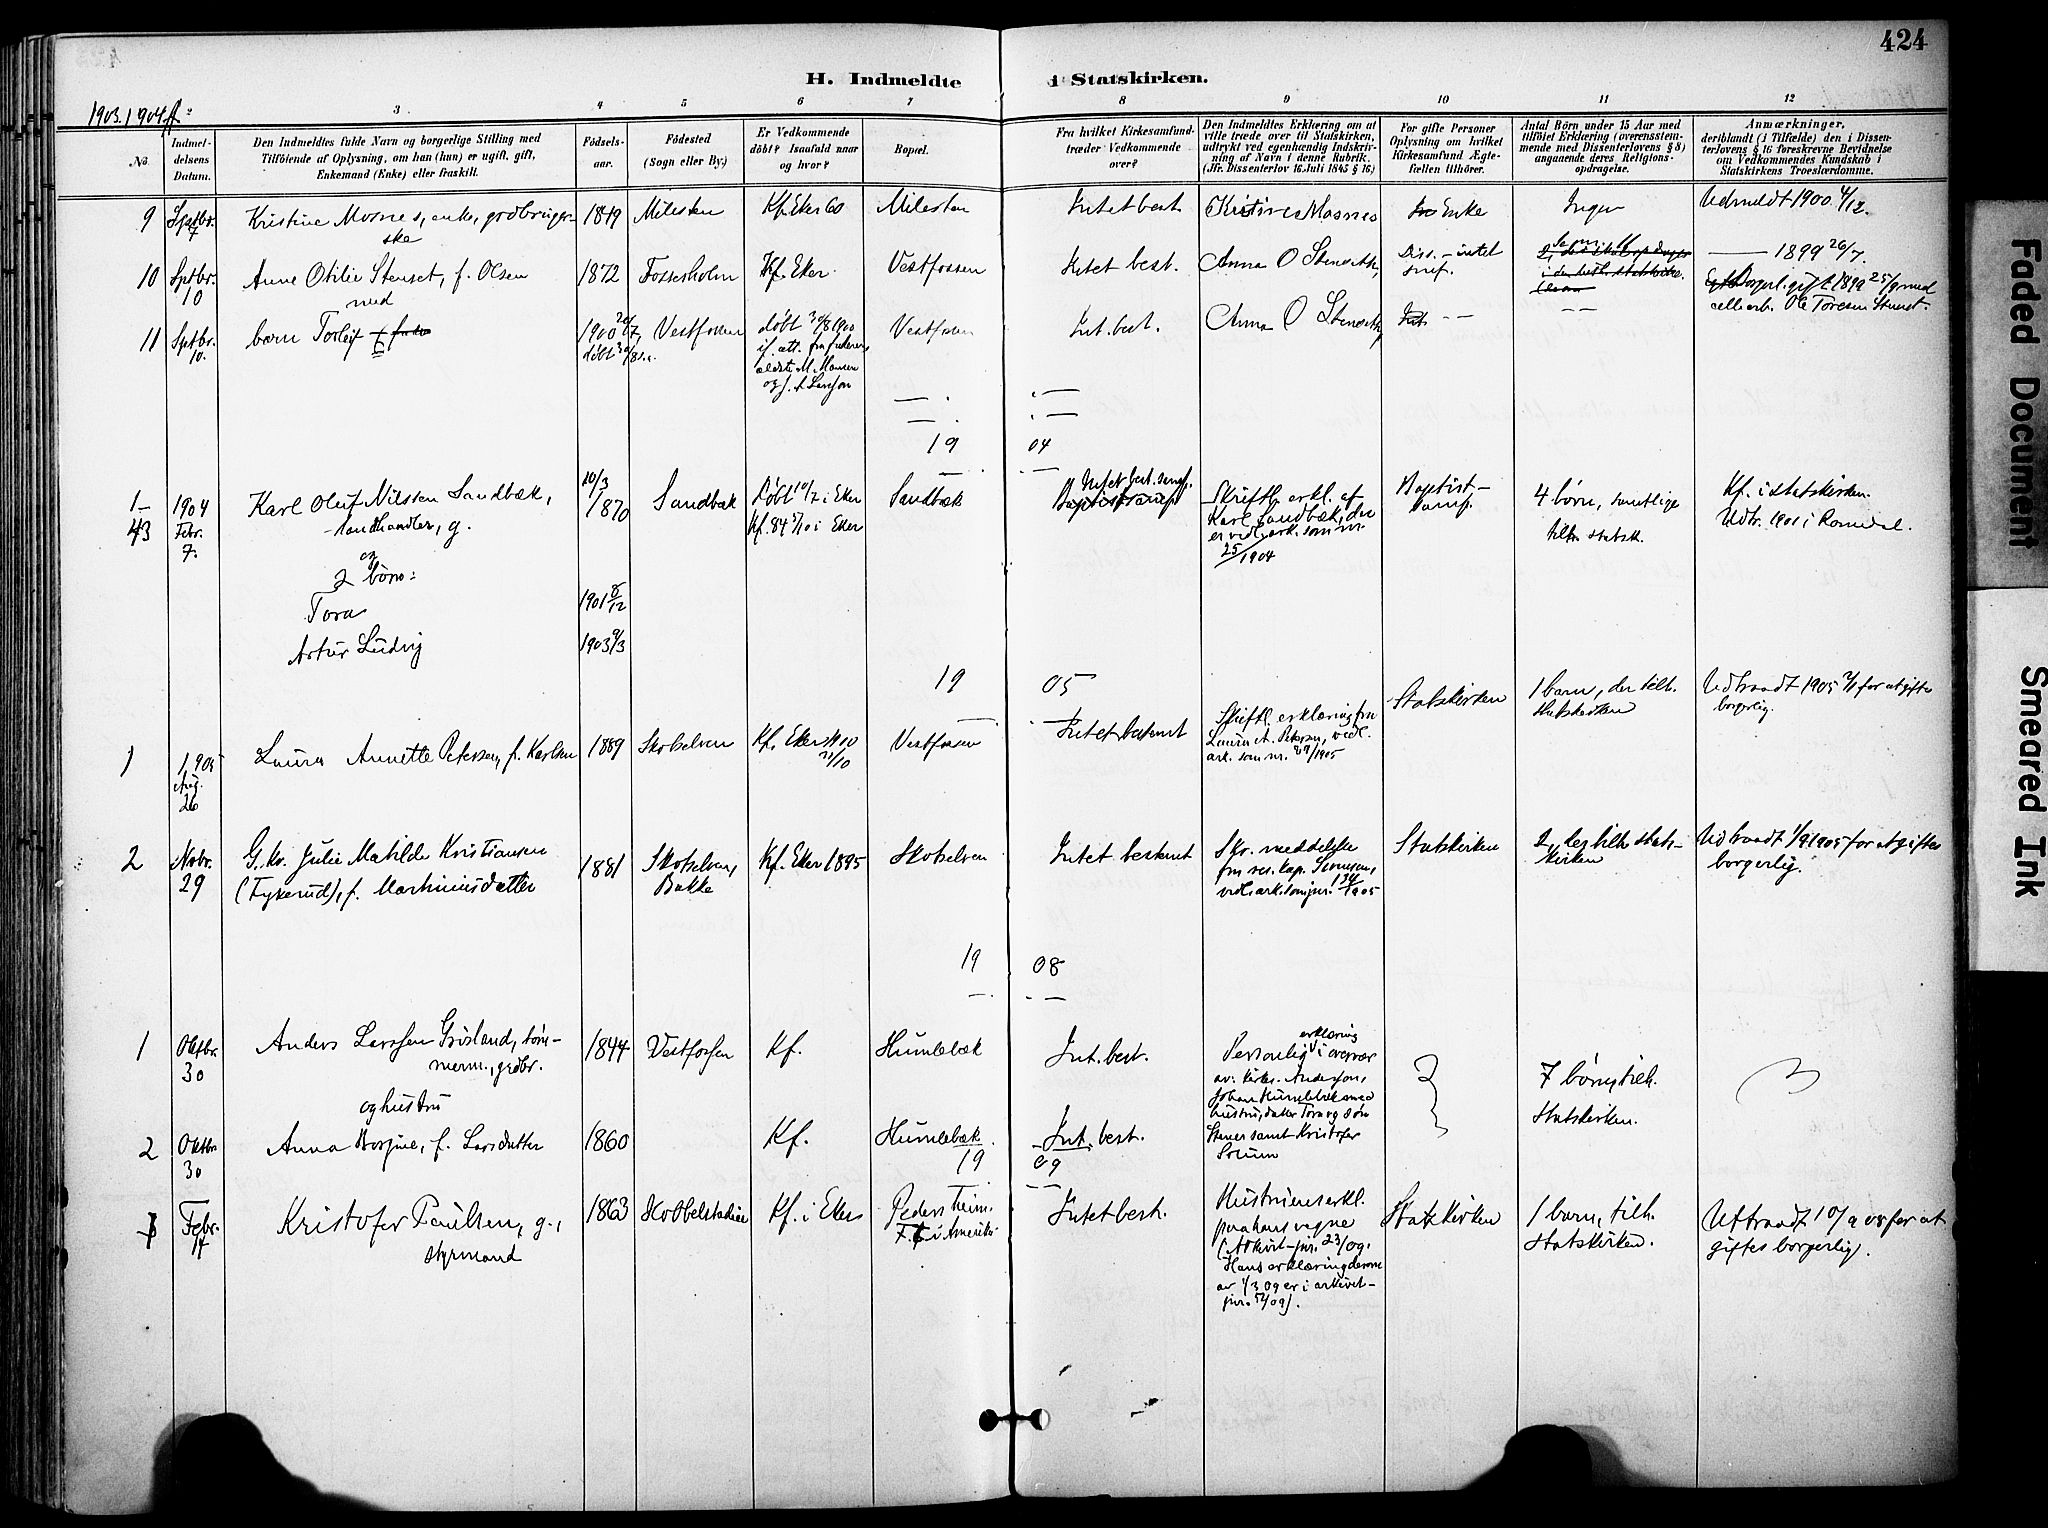 424
H. Indmeldte i Statskirken.
1903. 1904 ff.
3 4 5 6 7 8 9 10 11 12
No.
Indmeldelsens Datum.
Den Indmeldtes fulde Navn og borgerlige Stilling med
Tilføiende af Oplysning, om han (hun) er ugift, gift,
Enkemand (Enke) eller fraskilt.
Fødselsaar.
Fødested
(Sogn eller By.)
Er Vedkommende
døbt? Isaafald naar
og hvor?
Bopæl.
Fra hvilket Kirkesamfund
træder Vedkommende
over?
Den Indmeldtes Erklæring om at
ville træde over til Statskirken,
udtrykt ved egenhændig Indskrivning
af Navn i denne Rubrik.
(Jfr. Dissenterlov 16 Juli 1845 § 16)
For gifte Personer
Oplysning om hvilket
Kirkesamfund Ægtefællen
tilhører.
Antal Børn under 15 Aar med
tilføiet Erklæring (overensstemmende
med Dissenterlovens § 8)
angaaende deres Religionsopdragelse.
Anmærkninger,
deriblandt (i Tilfælde) den i Dissenterlovens
§ 16 foreskrevne Bevidnelse
om Vedkommendes Kundskab i
Statskirkens Troeslærdomme.
9 Septbr. 7 Kristine Mosnes, enke, 1849 Milesten Kf. Eker 60 Milesten Intet best. Kristine Mosnes Enke Ingen Udmeldt 1900 4/12.
10 Septbr. 10 Anne Otilie Stenset, f. Olsen 1872 Fossesholm Kf. Eker. Vestfossen Intet best. Anna O Stensett, Diss. - intet — 1899 26/7.
med
Borgerl. gift 1899 25/9 med
Ole Toresen Stenset.
11 Septbr. 10. barn Torleif 1900 Vestfossen døbt Vestfossen Int. best. Anna O Stensett — —
19 04
1- 43 1904 Febr. 7. Karl Oluf Nilssen Sandbæk, 10/3 1870 Sandbæk Døbt 10/7 i Eker Sandbæk Intet best. samf.
landhandler, g.
Kf. 84 5/10 i Eker
Skriftl. erkl. af
Karl Sandbæk, der
er vedl. ark. som nr.
25/1904
Baptist-
samf.
4 børn, samtlige
tilh. statsk.
Kf. i statskirken.
Udtr. 1901 i Romedal.
og
2 børn:
Tora 1901 8/12
Artur Ludvig 1903 9/3
19 05
1 1905 Aug. 26 Laura Annette Petersen, f. Karlsen 1889 Skotselven Kf. Eker Vestfossen Intet bestemt
Skriftl. erklæring fra
Laura A. Petersen, vedl.
ark. som nr.
Statskirken
1 barn, der tilh.
statskirken
Udtraadt 1905 for at gifte
borgerlig.
2 Novbr. 29 G. kv. Julie Matilde Kristiansen 1881 Skotselven, Bakke Kf. Eker 1895 Skotselven Intet bestemt
(Fykerud), f. Martiniusdatter
Skr. meddelelse
fra res. kap.
Statskirken
2, der tilh. stats-
kirken
Udtraadt 1/9 1905 for at giftes
borgerlig.
19 08
1 Oktbr. 30 Anders Larssen Grøsland, tøm- 1844 Vestfossen Kf. Humlebæk Int. best.
merm., grdbr.
Personlig erklæring i overvær
av kirkes. Anderson,
Johan Humlebæk med
hustru, datter Tora og søn
Stener samt Kristofer
Solum
7 børn, tilh.
statskirken.
og hustru
2 Oktbr. 30 Anna f. Larsdatter 1860 Kf. Humlebæk Int. best.
19 09
1 Febr. 14 Kristofer Paulsen, g., 1863 Kf. i Eker Intet best.
styrmand
F. t. i Amerika
Hustruens erkl.
paa hans vegne
(Arkivet - jnr. 23/09.
Hans erklæring derom
av 1/3 09 er i arkivet -
jnr. 52/09).
Statskirken
1 barn, tilh.
statskirken.
Uttraadt 10/9 08 for at
giftes borgerlig.
Faded Document
Smeared Ink